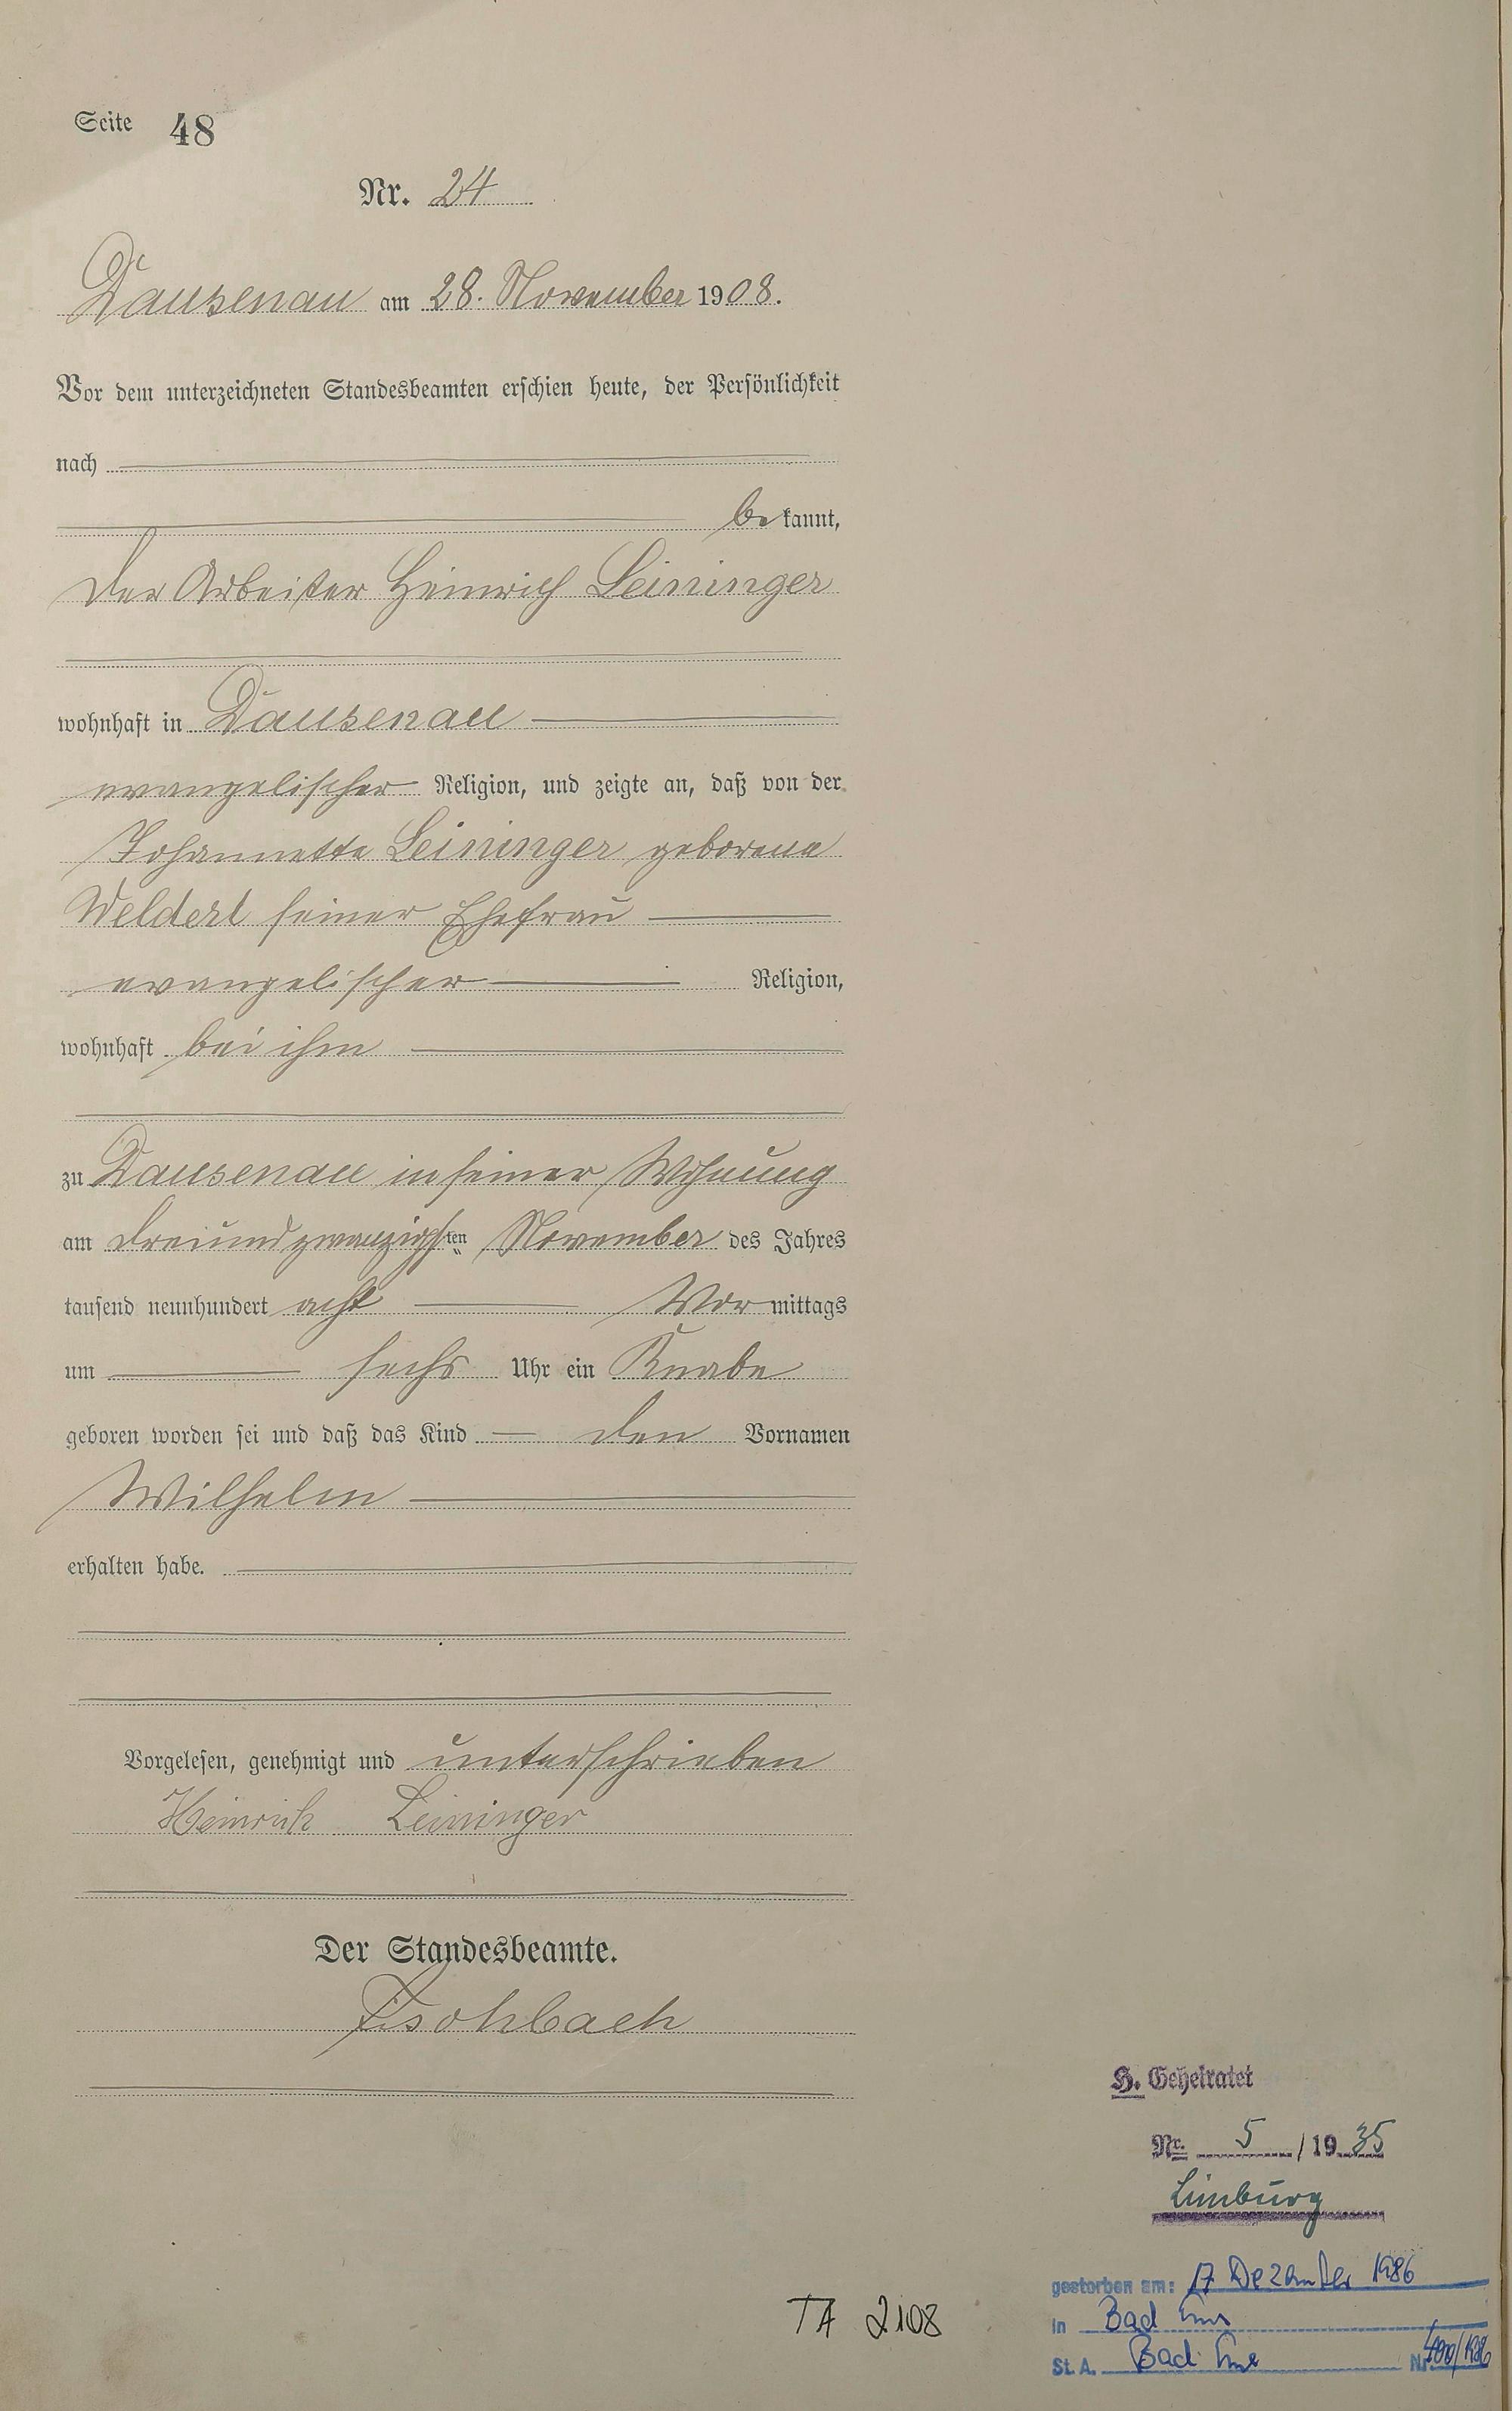 Seite 48
Nr. 24
Dausenau am 28. November 1908.
Vor dem unterzeichneten Standesbeamten erschien heute, der Persönlichkeit
nach
bekannt,
der Arbeiter Heinrich Leininger
wohnhaft in Dausenau
evangelischer Religion, und zeigte an, daß von der
Johannette Leininger geborene
Weldert seiner Ehefrau
evangelischer Religion,
wohnhaft bei ihm
zu Dausenau in seiner Wohnung
am dreiundzwanzigsten November des Jahres
tausend neunhundert acht Vormittags
um sechs Uhr ein Knabe
geboren worden sei und daß das Kind den Vornamen
Wilhelm
erhalten habe.
Vorgelesen, genehmigt und unterschrieben
Heinrich Leininger
Der Standesbeamte.
Fischbach
H. Geheiratet
Nr. 5 / 1935
Limburg
gestorben am: 17 Dezember 1986
in Bad Ems
St. A. Bad Ems Nr.
TA 2108